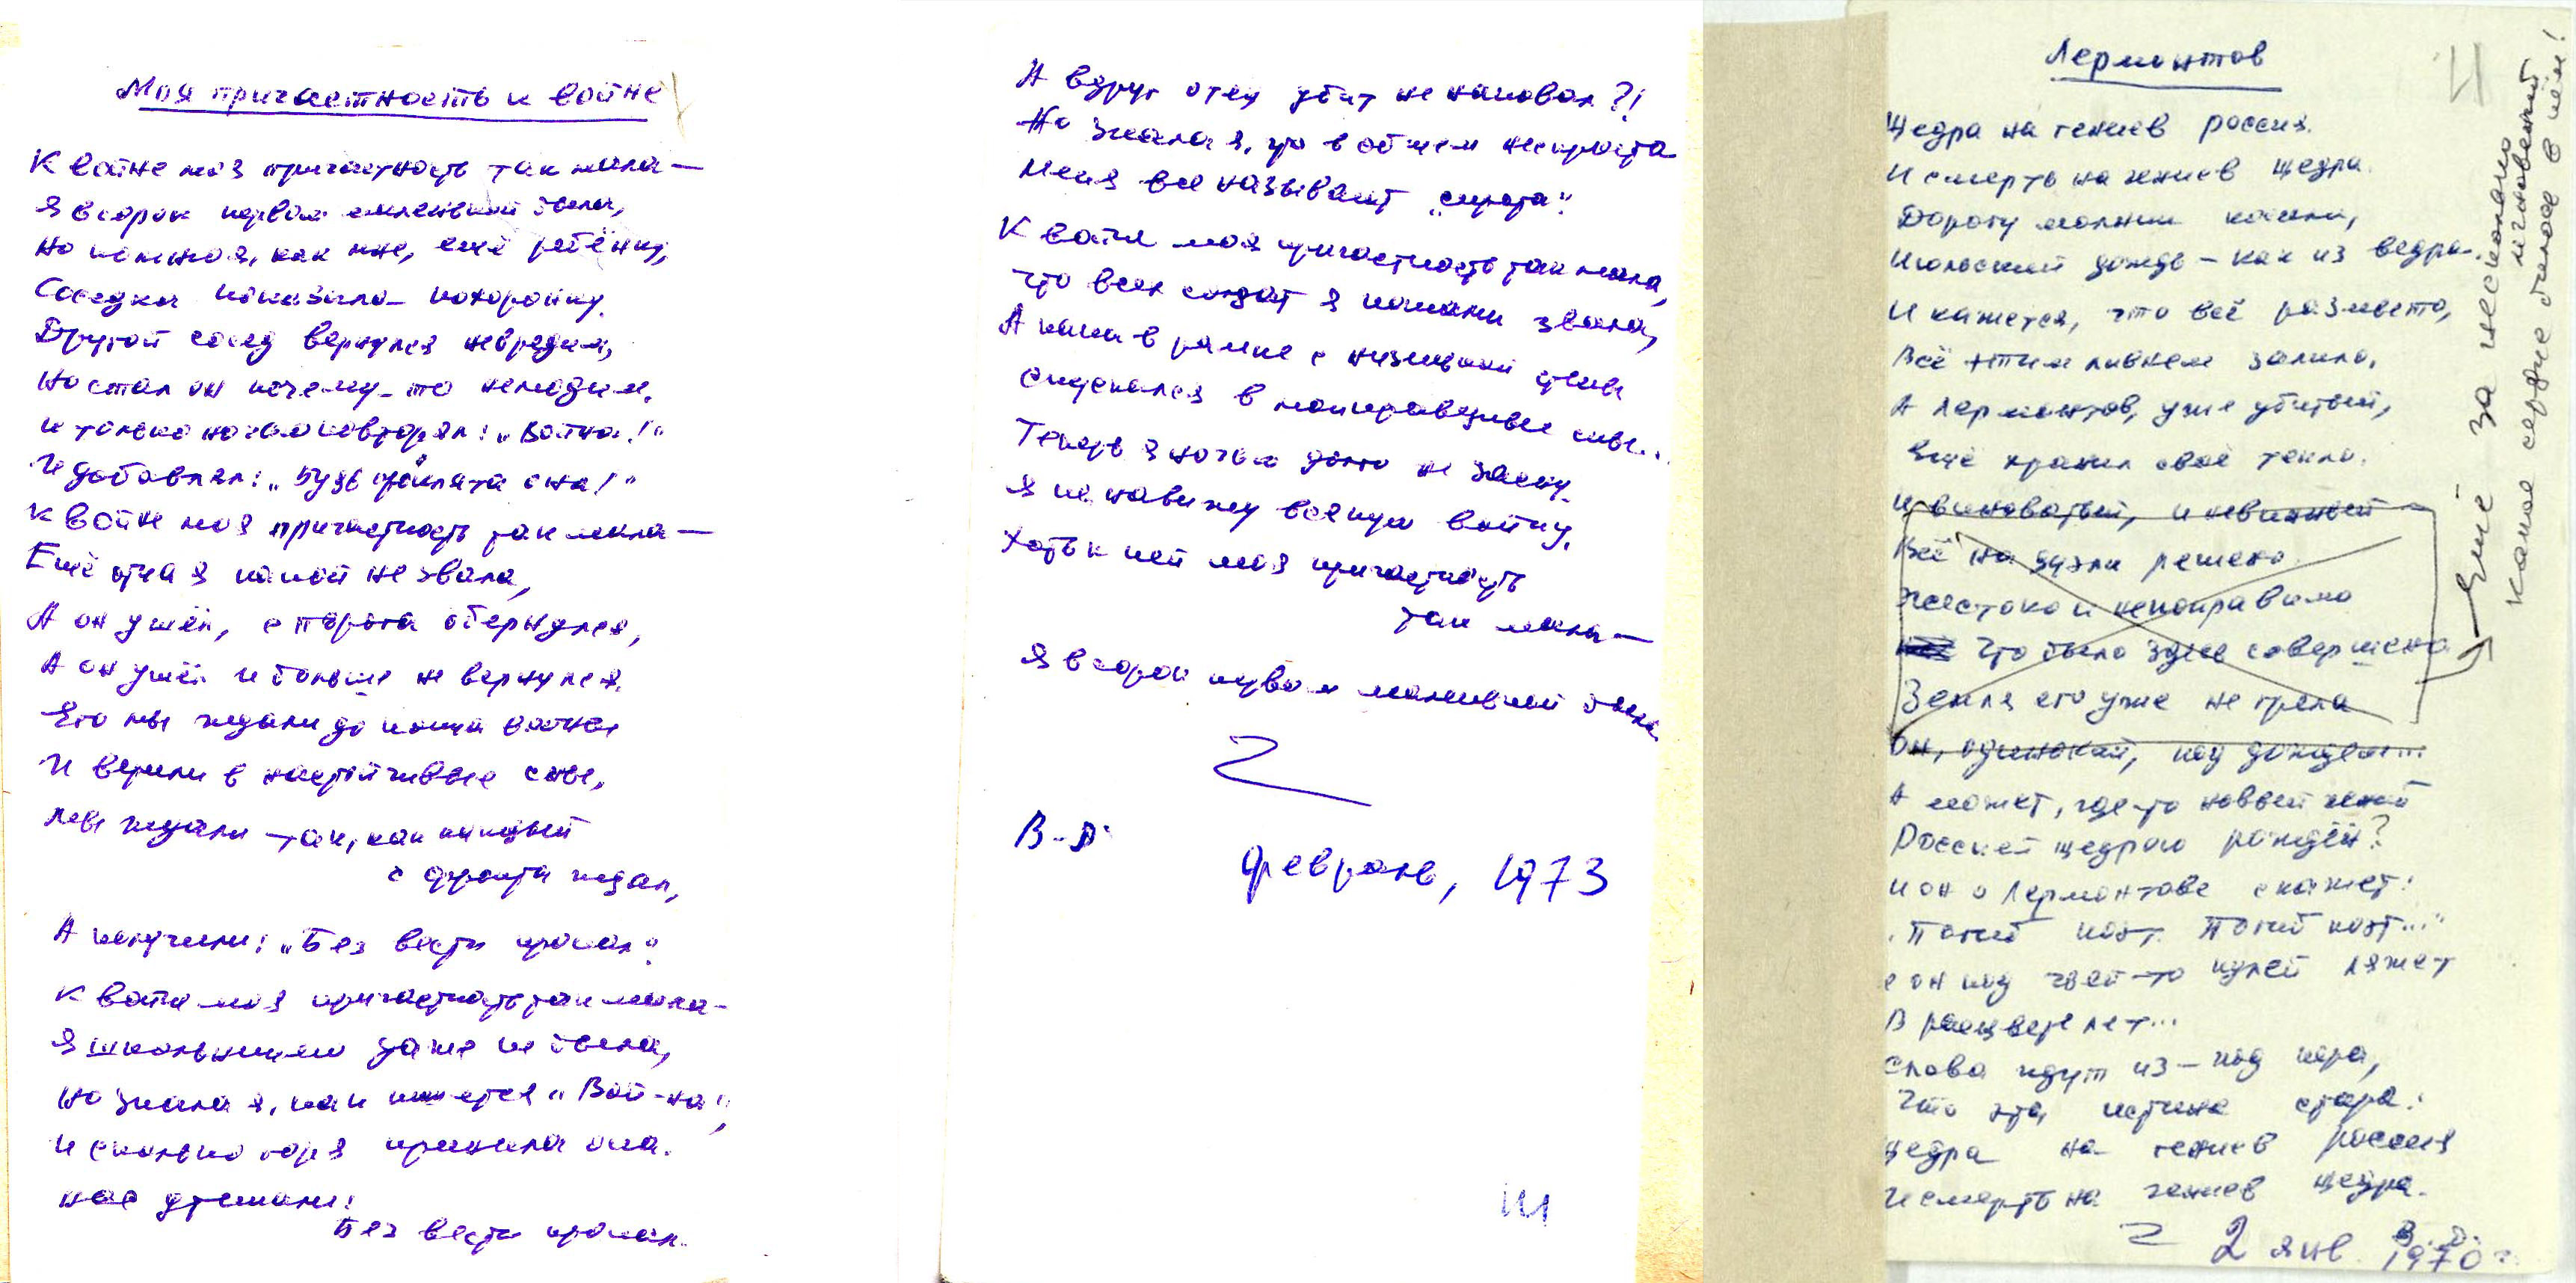 Моя причастность к войне
К войне моя причастность так мала —
Я в сорок первом маленькой была,
Но помню я, как мне, ещё ребёнку,
Соседка показала похоронку.
Другой сосед вернулся невредим,
Но стал он почему-то нелюдим.
И только ночью повторял: „Война!“
И добавлял: „Будь проклята она!“
К войне моя причастность так мала —
Ещё отца я папой не звала,
А он ушёл, с порога обернулся,
А он ушёл и больше не вернулся.
Его мы ждали до конца войны
И верили в настойчивые сны,
Мы ждали так, как каждый
с фронта ждал,
А получили: „Без вести пропал“.
К войне моя причастность так мала —
Я школьницею даже не была,
Но знала я, как пишется „Вой-на“,
И сколько горя принесла она.
Нас утешали:
Без вести пропал.
А вдруг отец убит не наповал?!
Но знала я, что в общем неспроста
Меня все называют „сирота“.
К войне моя причастность так мала,
Что всех солдат я папами звала,
А папа в рамке с низенькой стены
Спускался в неправдивые сны...
Теперь я ночью долго не засну.
Я ненавижу всякую войну,
Хоть к ней моя причастность
так мала —
Я в сорок первом маленькой была
В.Д.
Февраль, 1973
Лермонтов
Щедра на гениев Россия.
И смерть на гениев щедра.
Дорогу молнии косили,
Июльский дождь – как из ведра.
И кажется, что всё размыто,
Всё этим ливнем залило,
А Лермонтов, уже убитый,
Ещё хранил своё тепло.
И виноватый, и невинный
Всё на дуэли решено.
Жестоко и непоправимо
Что было здесь совершено
Земля его уже не грела
Он, одинокий, под дождём...
А может, где-то новый гений
Россией щедрою рождён?
И он о Лермонтове скажет:
„Погиб поэт. Погиб поэт...“
и он под чьей-то пулей ляжет
В расцвете лет...
Слова идут из-под пера,
Что эта истина стара:
Щедра на гениев Россия
И смерть на гениев щедра.
В.Д.
2 янв. 1970 г.
Ещё за несколько
мгновений
Какое сердце билось в нём!